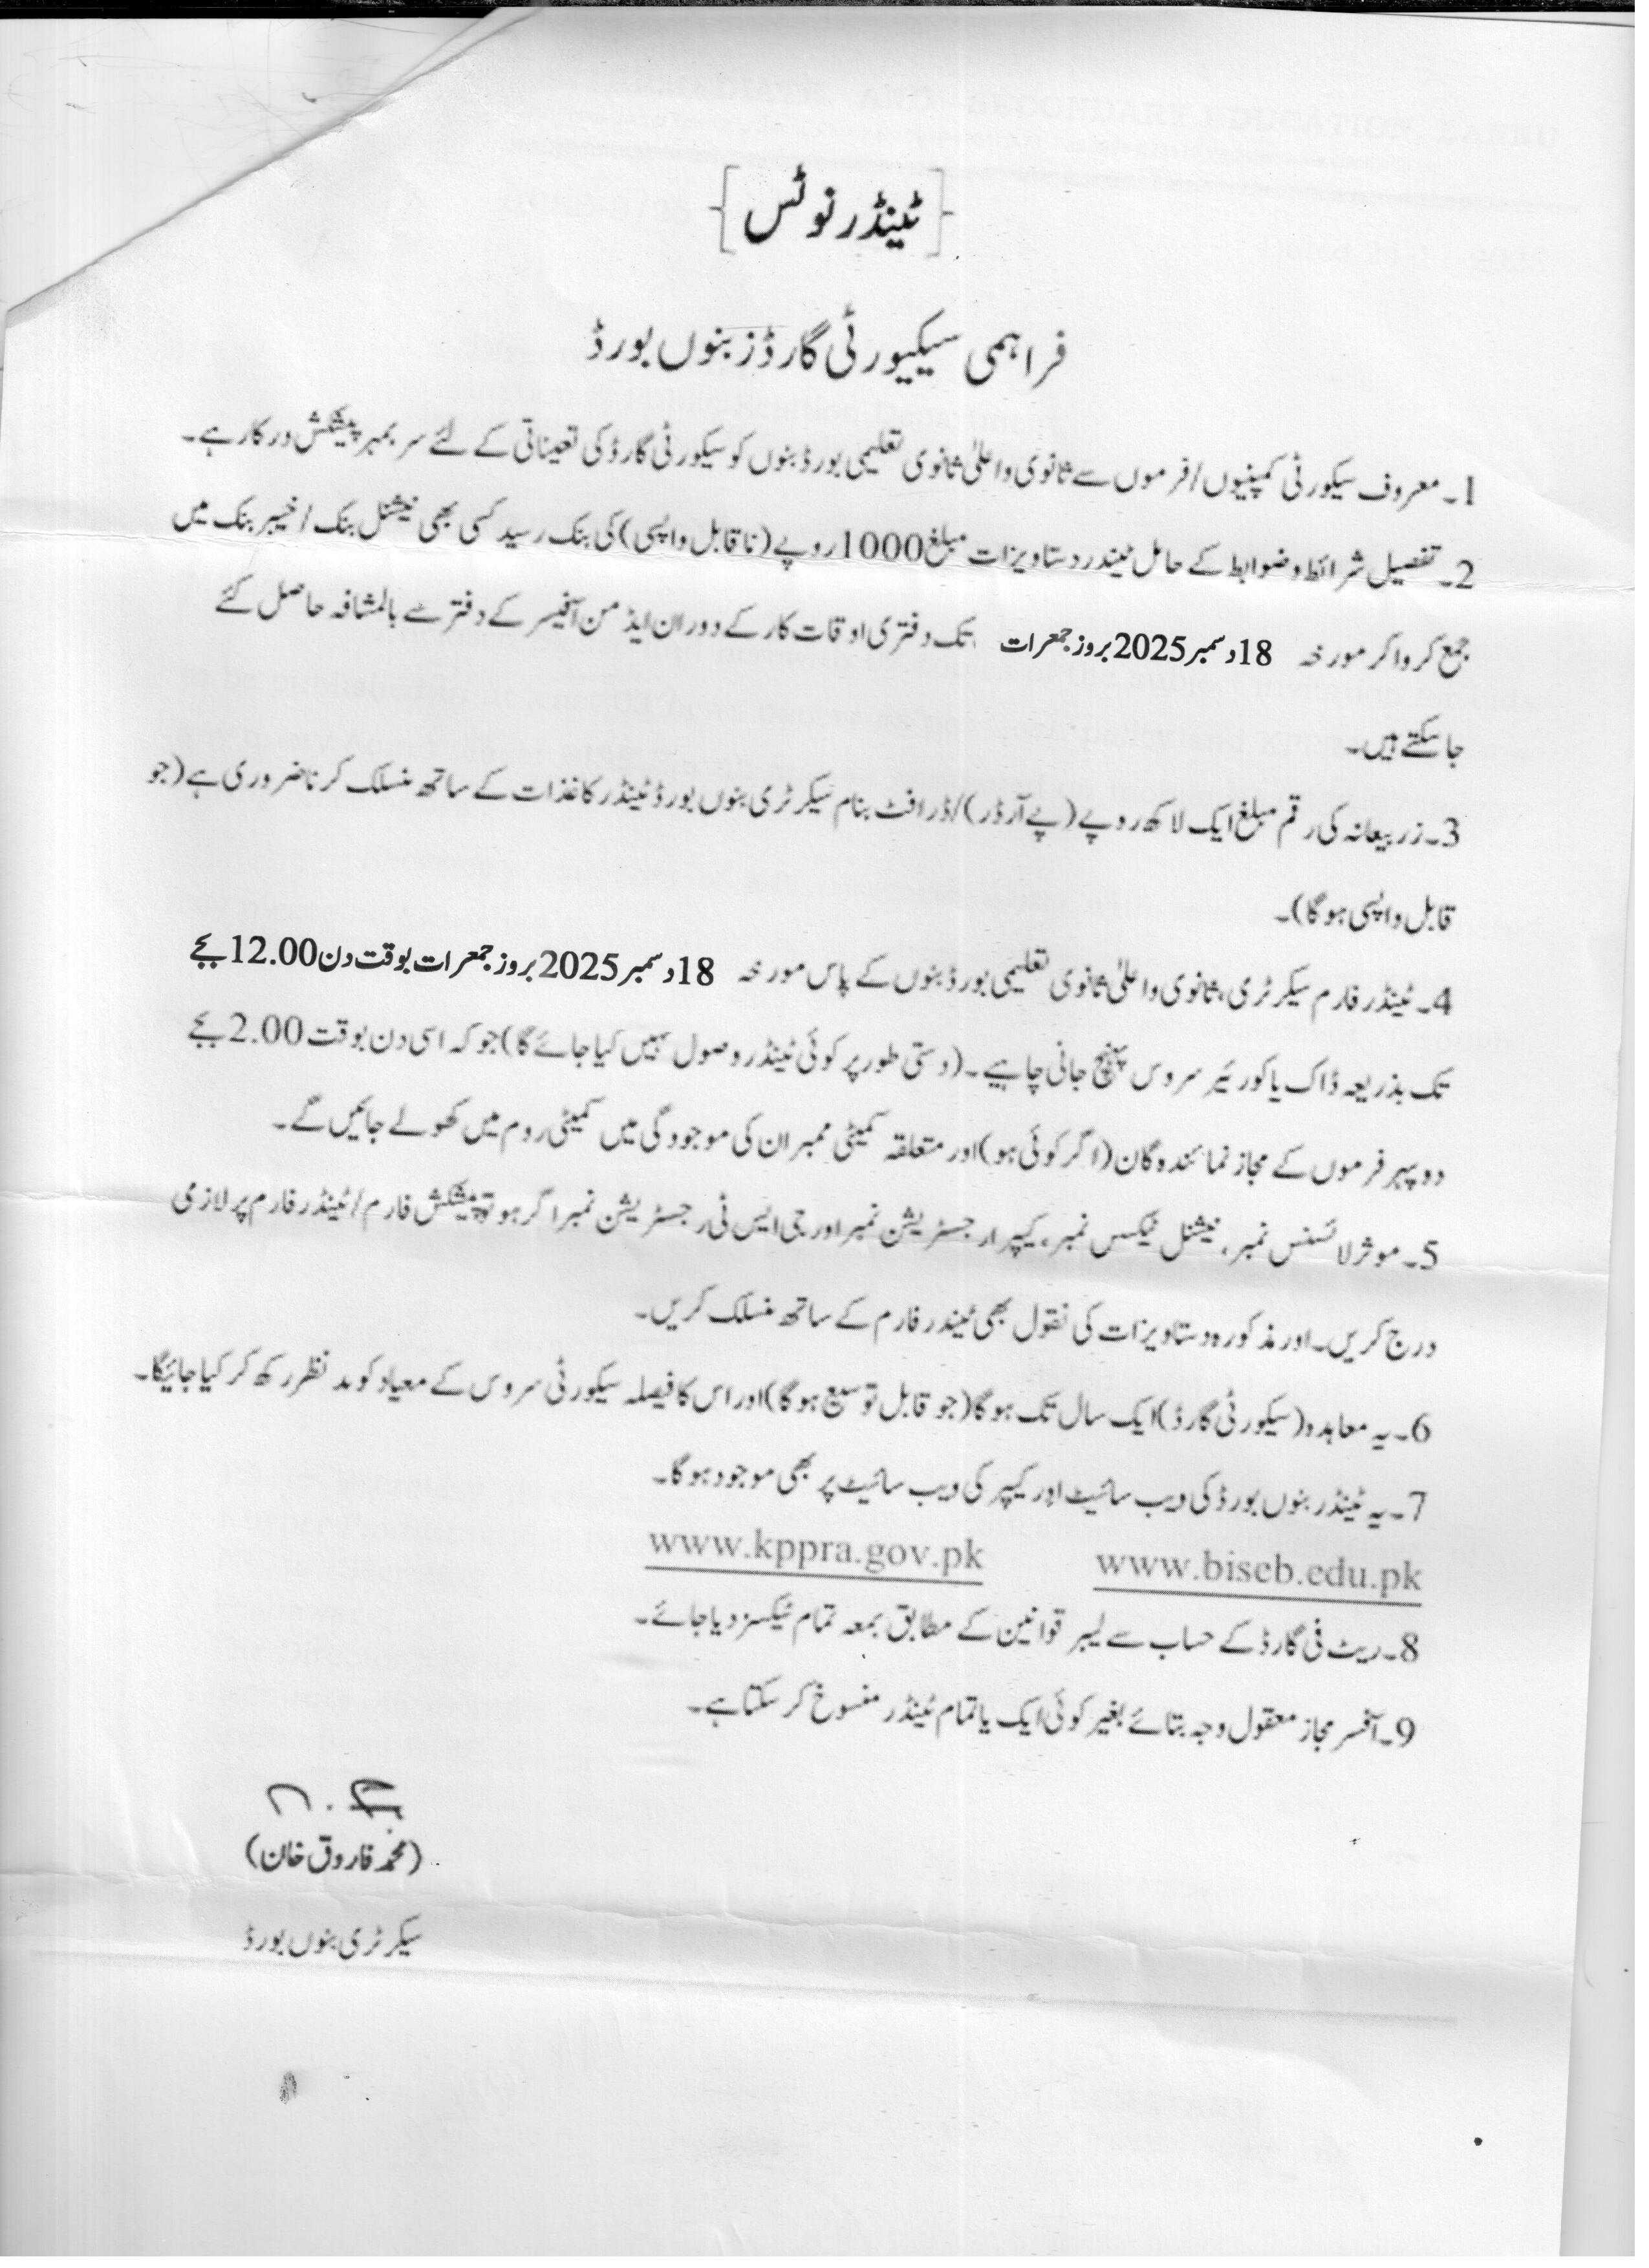 {ٹینڈر نوٹس}
فراہمی سیکیورٹی گارڈز بنوں بورڈ
1۔ معروف سیکورٹی کمپنیوں/فرموں سے ثانوی و اعلیٰ ثانوی تعلیمی بورڈ بنوں کو سیکورٹی گارڈ کی تعیناتی کے لئے سر بمہر پیشکش درکار ہے۔
2۔ تفصیل شرائط و ضوابط کے حامل ٹینڈر دستاویزات مبلغ 1000 روپے (ناقابل واپسی) کی بنک رسید کسی بھی نیشنل بنک / خیبر بنک میں
جمع کروا کر مورخہ 18 دسمبر 2025 بروز جمعرات تک دفتری اوقات کار کے دوران ایڈمن آفیسر کے دفتر سے بالمشافہ حاصل کئے
جا سکتے ہیں۔
3۔ زر بیعانہ کی رقم مبلغ ایک لاکھ روپے (پے آرڈر)/ڈرافٹ بنام سیکرٹری بنوں بورڈ ٹینڈر کاغذات کے ساتھ منسلک کرنا ضروری ہے (جو
قابل واپسی ہو گا)۔
4۔ ٹینڈر فارم سیکرٹری، ثانوی و اعلیٰ ثانوی تعلیمی بورڈ بنوں کے پاس مورخہ 18 دسمبر 2025 بروز جمعرات بوقت دن 12.00 بجے
تک بذریعہ ڈاک یا کورئیر سروس پہنچ جانی چاہیے۔ (دستی طور پر کوئی ٹینڈر وصول نہیں کیا جائے گا) جو کہ اسی دن بوقت 2.00 بجے
دوپہر فرموں کے مجاز نمائندہ گان (اگر کوئی ہو) اور متعلقہ کمیٹی ممبران کی موجودگی میں کمیٹی روم میں کھولے جائیں گے۔
5۔ موثر لائسنس نمبر، نیشنل ٹیکس نمبر، کیپرا رجسٹریشن نمبر اور جی ایس ٹی رجسٹریشن نمبر اگر ہو تو پیشکش فارم/ٹینڈر فارم پر لازمی
درج کریں۔ اور مذکورہ دستاویزات کی نقول بھی ٹینڈر فارم کے ساتھ منسلک کریں۔
6۔ یہ معاہدہ (سیکورٹی گارڈ) ایک سال تک ہو گا (جو قابل توسیع ہو گا) اور اس کا فیصلہ سیکورٹی سروس کے معیار کو مد نظر رکھ کر کیا جائیگا۔
7۔ یہ ٹینڈر بنوں بورڈ کی ویب سائیٹ اور کیپر کی ویب سائیٹ پر بھی موجود ہو گا۔
www.biseb.edu.pk www.kppra.gov.pk
8۔ ریٹ فی گارڈ کے حساب سے لیبر قوانین کے مطابق بمعہ تمام ٹیکسز دیا جائے۔
9۔ آفسر مجاز معقول وجہ بتائے بغیر کوئی ایک یا تمام ٹینڈر منسوخ کر سکتا ہے۔
(محمد فاروق خان)
سیکرٹری بنوں بورڈ